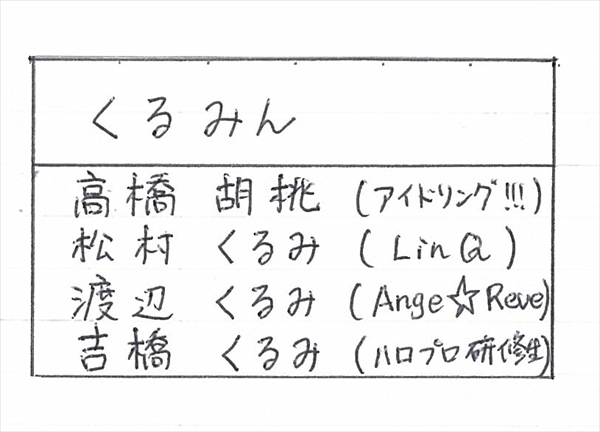 くるみん
高橋 胡桃 (アイドリング!!!)
松村 くるみ (LinQ)
渡辺 くるみ (Ange☆Reve)
吉橋 くるみ (ハロプロ研修生)